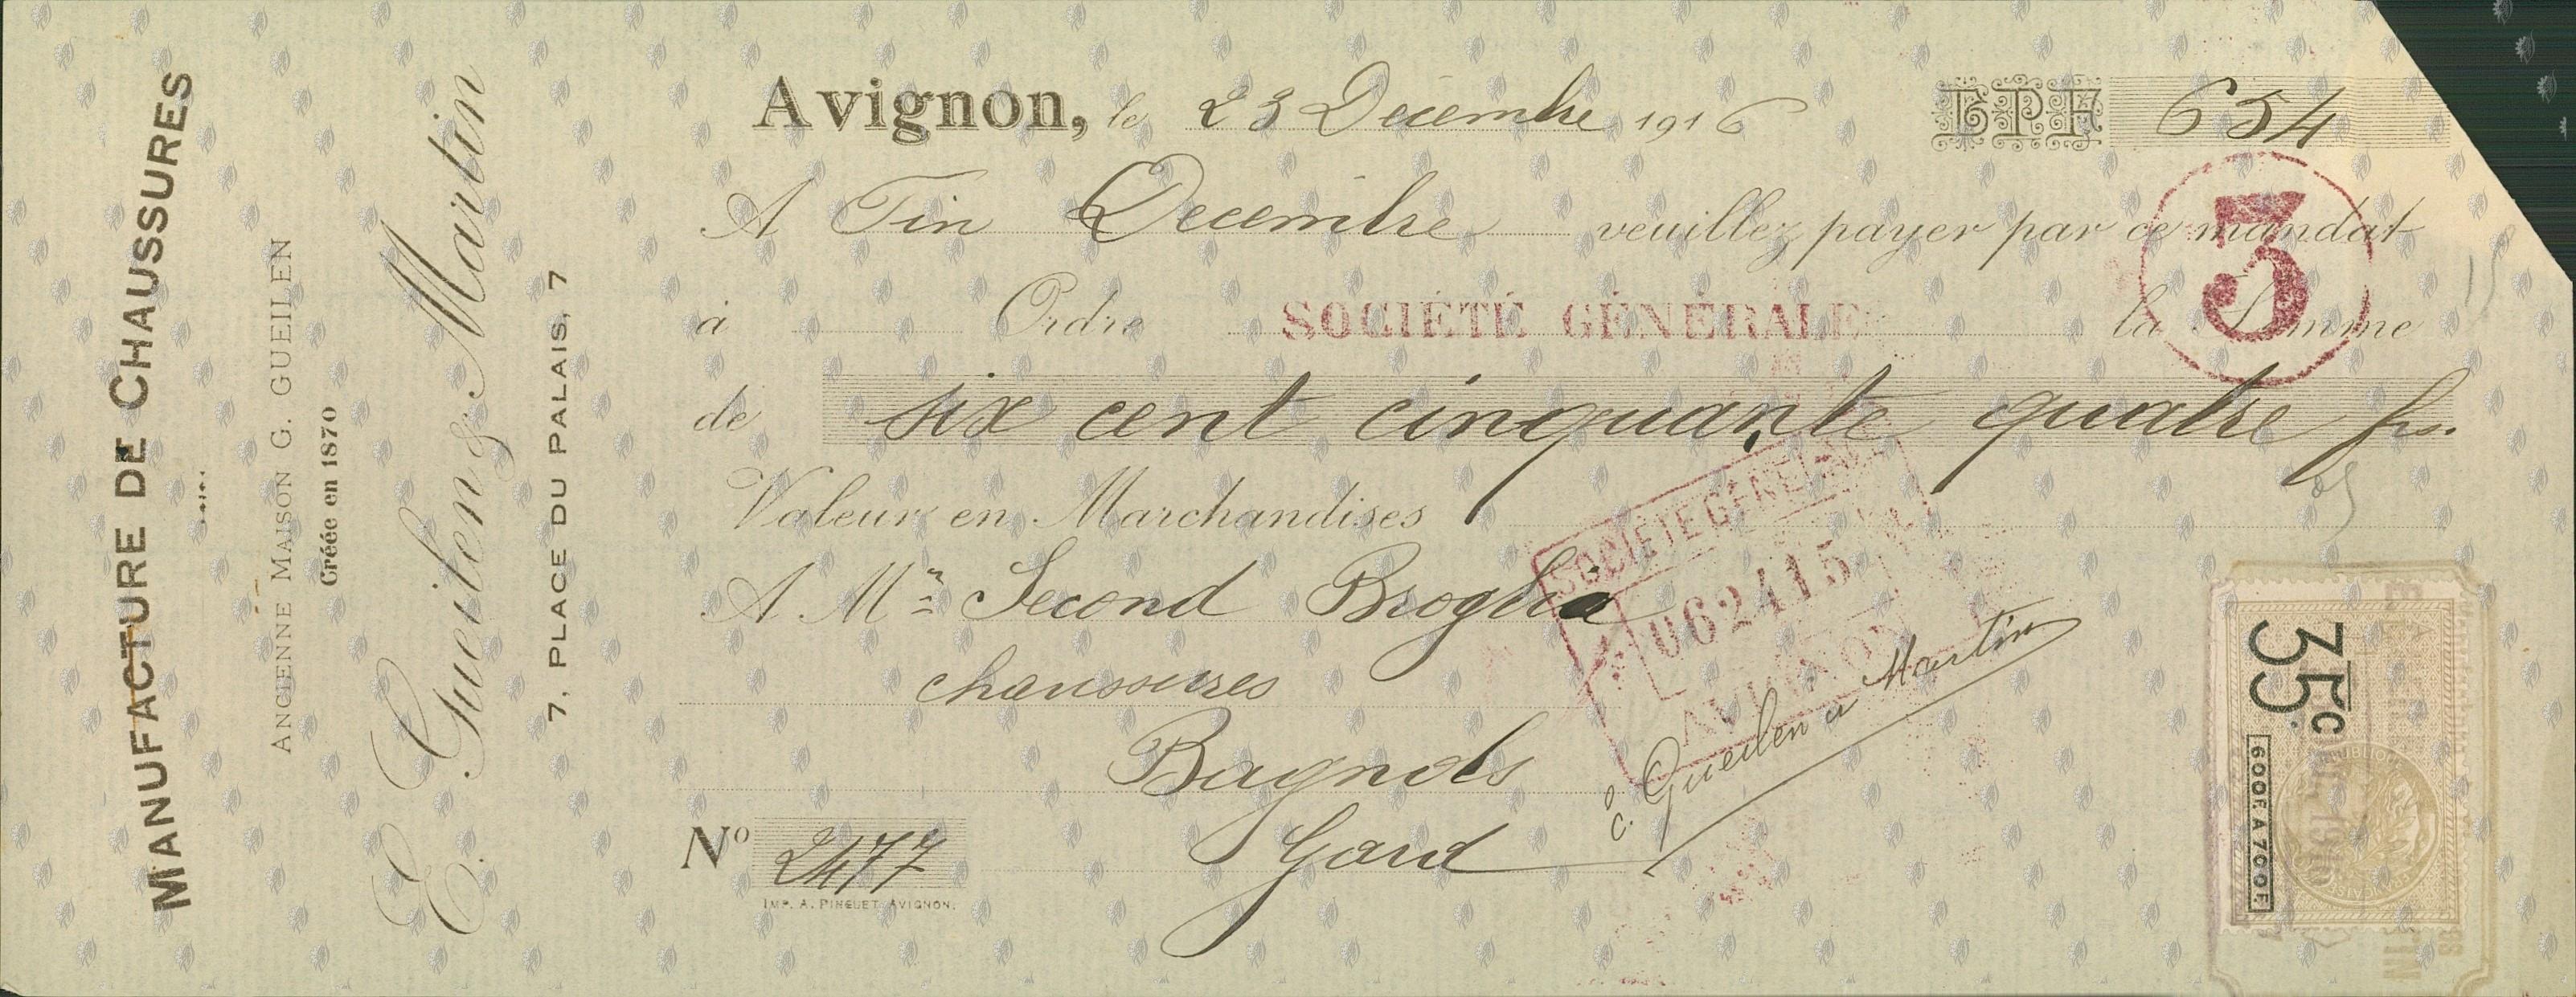 MANUFACTURE DE CHAUSSURES
ANCIENNE MAISON G. GUEILEN
Créée en 1870
E. Gueilen & Martin
7, PLACE DU PALAIS, 7
Avignon, le 23 Decembre 1916 BPF 654
A Fin Decembre veuillez payer par ce mandat
3
à Ordre SOCIÉTÉ GÉNÉRALE la Somme
de six cent cinquante quatre frs.
Valeur en Marchandises
SOCIETE GENERALE
062415
AVIGNON
A Mr Second Broglia
chaussures
Bagnols
Gard
E. Gueilen & Martin
No 2477
IMP. A. PINGUET, AVIGNON.
35c
600F. A 700F.